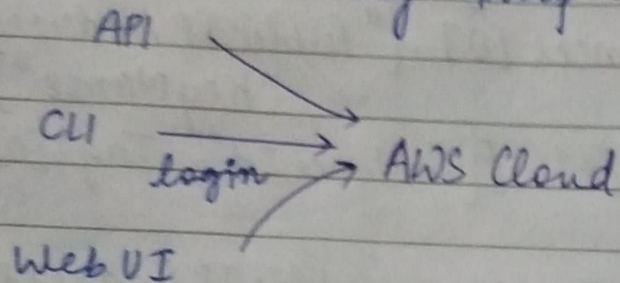 API
CLI
login
AWS Cloud
Web UI